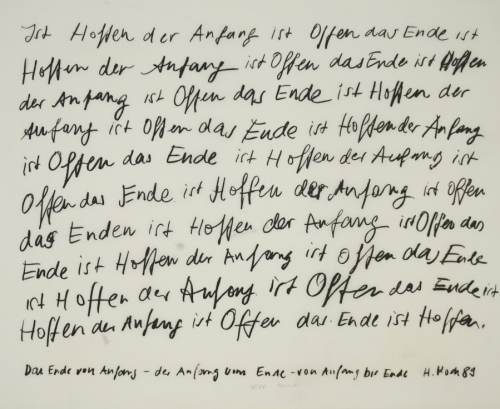 Ist Hoffen der Anfang ist Offen das Ende ist
Hoffen der Anfang ist Offen das Ende ist Hoffen
der Anfang ist Offen das Ende ist Hoffen der
Anfang ist Offen das Ende ist Hoffen der Anfang
ist Offen das Ende ist Hoffen der Anfang ist
Offen das Ende ist Hoffen der Anfang ist Offen
das Enden ist Hoffen der Anfang ist Offen das
Ende ist Hoffen der Anfang ist Offen das Ende
ist Hoffen der Anfang ist Offen das Ende ist
Hoffen der Anfang ist Offen das Ende ist Hoffen.
Das Ende von Anfang – der Anfang vom Ende – von Anfang bis Ende H. 89